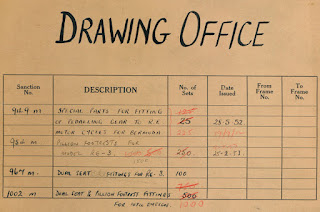 DRAWING OFFICE
Sanction No. DESCRIPTION No. of Sets Date Issued From Frame No. To Frame No.
964 M SPECIAL PARTS FOR FITTING
OF PEDALLING GEAR TO R.E. 25 25-5-53
MOTOR CYCLES FOR BERMUDA 225
PILLION FOOTRESTS FOR
MODEL RE-3. 250
967 M. DUAL SEAT & FITTINGS FOR RE-3. 100
1002 M DUAL SEAT & PILLION FOOTREST FITTINGS 500
FOR MOTOR CYCLES. 1000